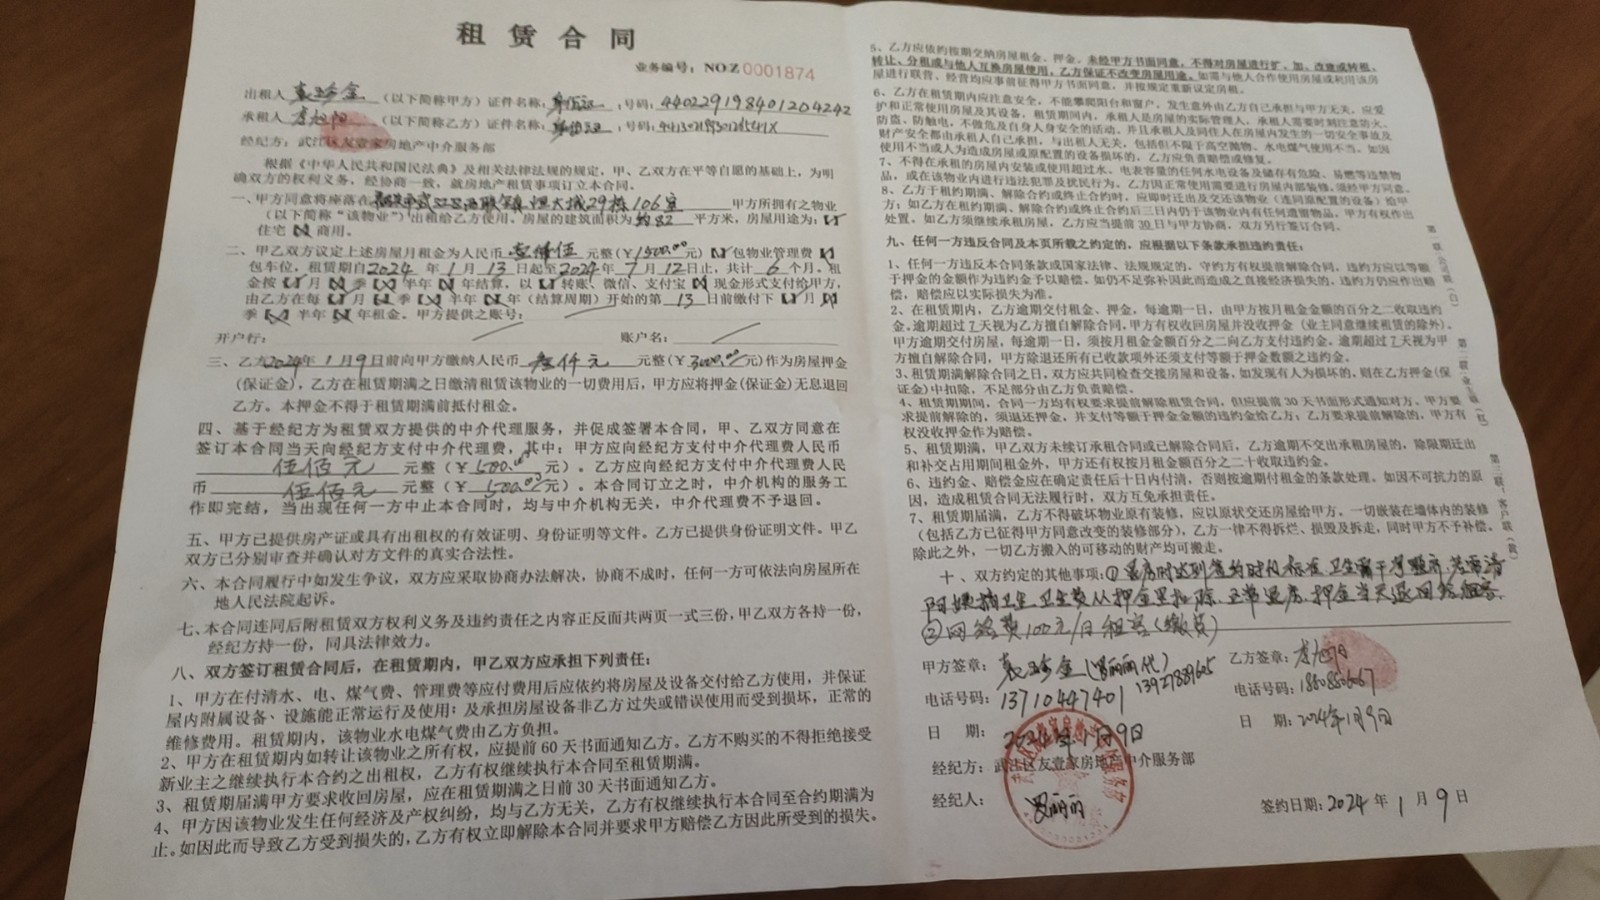 租赁合同
业务编号：NO:Z0001874
出租人（以下简称甲方）证件名称：身份证；号码：440229198401204242
承租人（以下简称乙方）证件名称：身份证；号码：
经纪方：武江区友壹家房地产中介服务部
根据《中华人民共和国民法典》及相关法律法规的规定，甲、乙双方在平等自愿的基础上，为明
确双方的权利义务，经协商一致，就房地产租赁事项订立本合同。
一、甲方同意将座落在 恒大城29栋106室 甲方所拥有之物业
（以下简称“该物业”）出租给乙方使用。房屋的建筑面积为约82平方米，房屋用途为：【】
住宅【】商用。
二、甲乙双方议定上述房屋月租金为人民币壹仟伍元整（￥1500.00元）【】包物业管理费【】
包车位，租赁期自2024年1月13日起至2024年7月12日止，共计6个月。租
金按【】月【】季【】半年【】年结算，以【】转账、微信、支付宝【】现金形式支付给甲方，
由乙方在每【】月【】季【】半年【】年（结算周期）开始的第13日前缴付下【】月【】
季【】半年【】年租金。甲方提供之账号：
开户行： 账户名：
三、乙方2024年1月9日前向甲方缴纳人民币叁仟元元整（￥3000.00元）作为房屋押金
（保证金），乙方在租赁期满之日缴清租赁该物业的一切费用后，甲方应将押金（保证金）无息退回
乙方。本押金不得于租赁期满前抵付租金。
四、基于经纪方为租赁双方提供的中介代理服务，并促成签署本合同，甲、乙双方同意在
签订本合同当天向经纪方支付中介代理费，其中：甲方应向经纪方支付中介代理费人民币
伍佰元元整（￥500.00元）。乙方应向经纪方支付中介代理费人民
币伍佰元元整（￥500.00元）。本合同订立之时，中介机构的服务工
作即完结，当出现任何一方中止本合同时，均与中介机构无关，中介代理费不予退回。
五、甲方已提供房产证或具有出租权的有效证明、身份证明等文件。乙方已提供身份证明文件。甲乙
双方已分别审查并确认对方文件的真实合法性。
六、本合同履行中如发生争议，双方应采取协商办法解决，协商不成时，任何一方可依法向房屋所在
地人民法院起诉。
七、本合同连同后附租赁双方权利义务及违约责任之内容正反面共两页一式三份，甲乙双方各持一份，
经纪方持一份，同具法律效力。
八、双方签订租赁合同后，在租赁期内，甲乙双方应承担下列责任：
1、甲方在付清水、电、煤气费、管理费等应付费用后应依约将房屋及设备交付给乙方使用，并保证
屋内附属设备、设施能正常运行及使用；及承担房屋设备非乙方过失或错误使用而受到损坏，正常的
维修费用。租赁期内，该物业水电煤气费由乙方负担。
2、甲方在租赁期内如转让该物业之所有权，应提前60天书面通知乙方。乙方不购买的不得拒绝接受
新业主之继续执行本合约之出租权，乙方有权继续执行本合同至租赁期满。
3、租赁期届满甲方要求收回房屋，应在租赁期满之日前30天书面通知乙方。
4、甲方因该物业发生任何经济及产权纠纷，均与乙方无关，乙方有权继续执行本合同至合约期满为
止。如因此而导致乙方受到损失的，乙方有权立即解除本合同并要求甲方赔偿乙方因此所受到的损失。
5、乙方应依约按期交纳房屋租金、押金，未经甲方书面同意，不得对房屋进行扩、加、改建或转租、
转让、分租或与他人互换房屋使用，乙方保证不改变房屋用途。如需与他人合作使用房屋或利用该房
屋进行联营、经营均应事前征得甲方书面同意，并按规定重新议定房租。
6、乙方在租赁期内应注意安全，不能攀爬阳台和窗户，发生意外由乙方自己承担与甲方无关，应爱
护和正常使用房屋及其设备，租赁期间内，承租人是房屋的实际管理人，承租人需要时刻注意防火、
防盗、防触电，不做危及自身人身安全的活动，并且承租人及同住人在房屋内发生的一切安全事故及
财产安全都由承租人自己承担，与出租人无关，包括但不限于高空抛物、水电煤气使用不当。如因
使用不当或人为造成房屋或原配置的设备损坏的，乙方应负责赔偿或修复。
7、不得在承租的房屋内安装或使用超过水、电表容量的任何水电设备及储存有危险、易燃等违禁物
品，或在该物业内进行违法犯罪及扰民行为。乙方因正常使用需要进行房屋内部装修，须经甲方同意。
8、乙方于租约期满、解除合约或终止合约时，应即时迁出及交还该物业（连同原配置的设备）给甲
方；如乙方在租约期满、解除合约或终止合约后三日内仍于该物业内有任何遗留物品，甲方有权作出
处置。如乙方须继续承租房屋，乙方应当提前30日与甲方协商，双方另行签订合同。
九、任何一方违反合同及本页所载之约定的，应根据以下条款承担违约责任：
1、任何一方违反本合同条款或国家法律、法规规定的，守约方有权提前解除合同，违约方应以等额
于押金的金额作为违约金予以赔偿。如仍不足弥补因此而造成之直接经济损失的，违约方仍应作出赔
偿，赔偿应以实际损失为准。
2、在租赁期内，乙方逾期交付租金、押金，每逾期一日，由甲方按月租金金额的百分之二收取违约
金。逾期超过7天视为乙方擅自解除合同，甲方有权收回房屋并没收押金（业主同意继续租赁的除外）。
甲方逾期交付房屋，每逾期一日，须按月租金金额百分之二向乙方支付违约金。逾期超过7天视为甲
方擅自解除合同，甲方除退还所有已收款项外还须支付等额于押金数额之违约金。
3、租赁期满解除合同之日，双方应共同检查交接房屋和设备，如发现有人为损坏的，则在乙方押金（保
证金）中扣除，不足部分由乙方负责赔偿。
4、租赁期期间，合同一方均有权要求提前解除租赁合同，但应提前30天书面形式通知对方。甲方要
求提前解除的，须退还押金，并支付等额于押金金额的违约金给乙方；乙方要求提前解除的，甲方有
权没收押金作为赔偿。
5、租赁期满，甲乙双方未续订承租合同或已解除合同后，乙方逾期不交出承租房屋的，除限期迁出
和补交占用期间租金外，甲方还有权按月租金额百分之二十收取违约金。
6、违约金、赔偿金应在确定责任后十日内付清，否则按逾期付租金的条款处理。如因不可抗力的原
因，造成租赁合同无法履行时，双方互免承担责任。
7、租赁期届满，乙方不得破坏物业原有装修，应以原状交还房屋给甲方。一切嵌装在墙体内的装修
（包括乙方已征得甲方同意改变的装修部分），乙方一律不得拆烂、损毁及拆走，同时甲方不予补偿。
除此之外，一切乙方搬入的可移动的财产均可搬走。
十、双方约定的其他事项：①退房时达到签约时的标准，卫生需干净整齐，若需请
阿姨搞卫生，卫生费从押金里扣除，正常退房，押金当天退回给租客。
②网络费100元/月租客（缴费）
甲方签章： （罗丽丽代） 乙方签章：
电话号码：13710447401 电话号码：
日 期：2024年1月9日 日 期：2024年1月9日
经纪方：武江区友壹家房地产中介服务部
经纪人：罗丽丽
签约日期：2024年1月9日
第一联：公司联（白）
第二联：业主联（红）
第三联：客户联（黄）